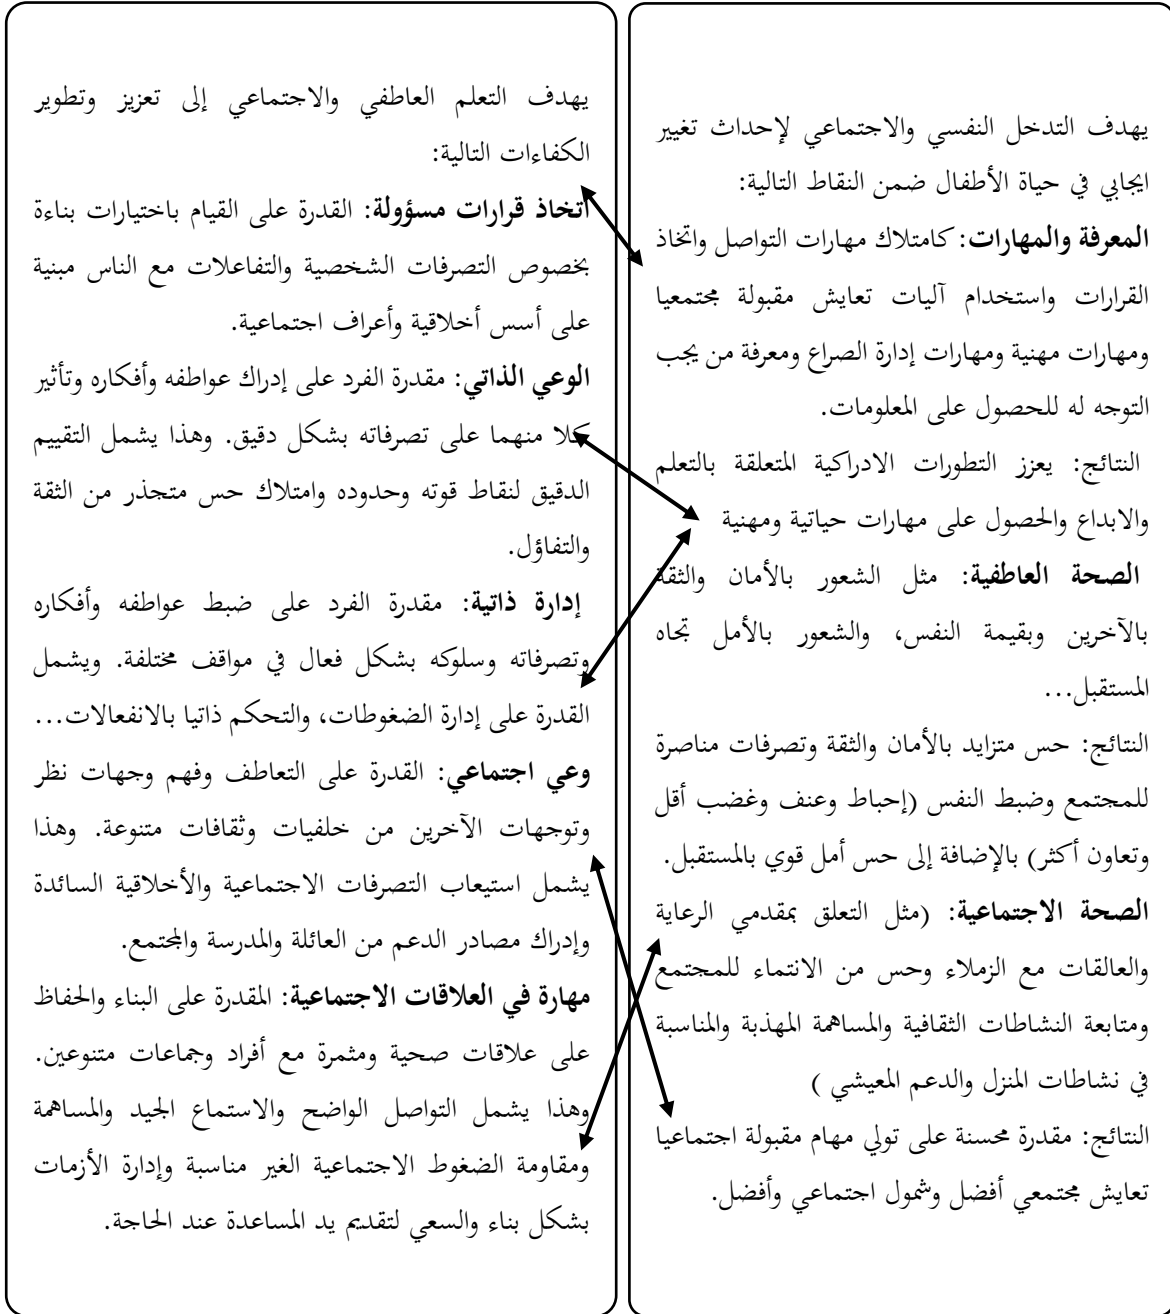 يهدف التدخل النفسي والاجتماعي لإحداث تغيير
ايجابي في حياة الأطفال ضمن النقاط التالية:
المعرفة والمهارات: كامتلاك مهارات التواصل واتخاذ
القرارات واستخدام آليات تعايش مقبولة مجتمعيا
ومهارات مهنية ومهارات إدارة الصراع ومعرفة من يجب
التوجه له للحصول على المعلومات.
النتائج: يعزز التطورات الادراكية المتعلقة بالتعلم
والابداع والحصول على مهارات حياتية ومهنية
الصحة العاطفية: مثل الشعور بالأمان والثقة
بالآخرين وبقيمة النفس، والشعور بالأمل تجاه
المستقبل...
النتائج: حس متزايد بالأمان والثقة وتصرفات مناصرة
للمجتمع وضبط النفس (إحباط وعنف وغضب أقل
وتعاون أكثر) بالإضافة إلى حس أمل قوي بالمستقبل.
الصحة الاجتماعية: (مثل التعلق بمقدمي الرعاية
والعالقات مع الزملاء وحس من الانتماء للمجتمع
ومتابعة النشاطات الثقافية والمساهمة المهذبة والمناسبة
في نشاطات المنزل والدعم المعيشي )
النتائج: مقدرة محسنة على تولي مهام مقبولة اجتماعيا
تعايش مجتمعي أفضل وشمول اجتماعي وأفضل.
يهدف التعلم العاطفي والاجتماعي إلى تعزيز وتطوير
الكفاءات التالية:
اتخاذ قرارات مسؤولة: القدرة على القيام باختيارات بناءة
بخصوص التصرفات الشخصية والتفاعلات مع الناس مبنية
على أسس أخلاقية وأعراف اجتماعية.
الوعي الذاتي: مقدرة الفرد على إدراك عواطفه وأفكاره وتأثير
كلا منهما على تصرفاته بشكل دقيق. وهذا يشمل التقييم
الدقيق لنقاط قوته وحدوده وامتلاك حس متجذر من الثقة
والتفاؤل.
إدارة ذاتية: مقدرة الفرد على ضبط عواطفه وأفكاره
وتصرفاته وسلوكه بشكل فعال في مواقف مختلفة. ويشمل
القدرة على إدارة الضغوطات، والتحكم ذاتيا بالانفعالات...
وعي اجتماعي: القدرة على التعاطف وفهم وجهات نظر
وتوجهات الآخرين من خلفيات وثقافات متنوعة. وهذا
يشمل استيعاب التصرفات الاجتماعية والأخلاقية السائدة
وإدراك مصادر الدعم من العائلة والمدرسة والمجتمع.
مهارة في العلاقات الاجتماعية: المقدرة على البناء والحفاظ
على علاقات صحية ومثمرة مع أفراد وجماعات متنوعين.
وهذا يشمل التواصل الواضح والاستماع الجيد والمساهمة
ومقاومة الضغوط الاجتماعية الغير مناسبة وإدارة الأزمات
بشكل بناء والسعي لتقديم يد المساعدة عند الحاجة.